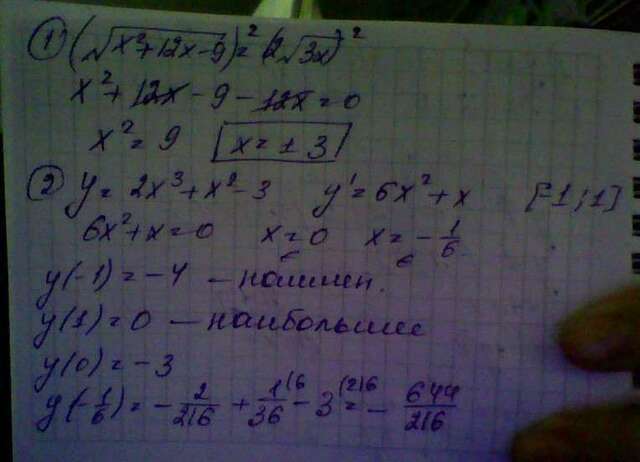 1) (√x²+12x-9)²=(2√3x)²
x²+12x-9-12x=0
x²=9 x=±3
2) y=2x³+x²-3 y'=6x²+x [-1;1]
6x²+x=0 x=0 x=-1/6
y(-1)=-4 - наимен.
y(1)=0 - наибольшее
y(0)=-3
y(-1/6)=-2/216+1/36(6-3(216=-644/216